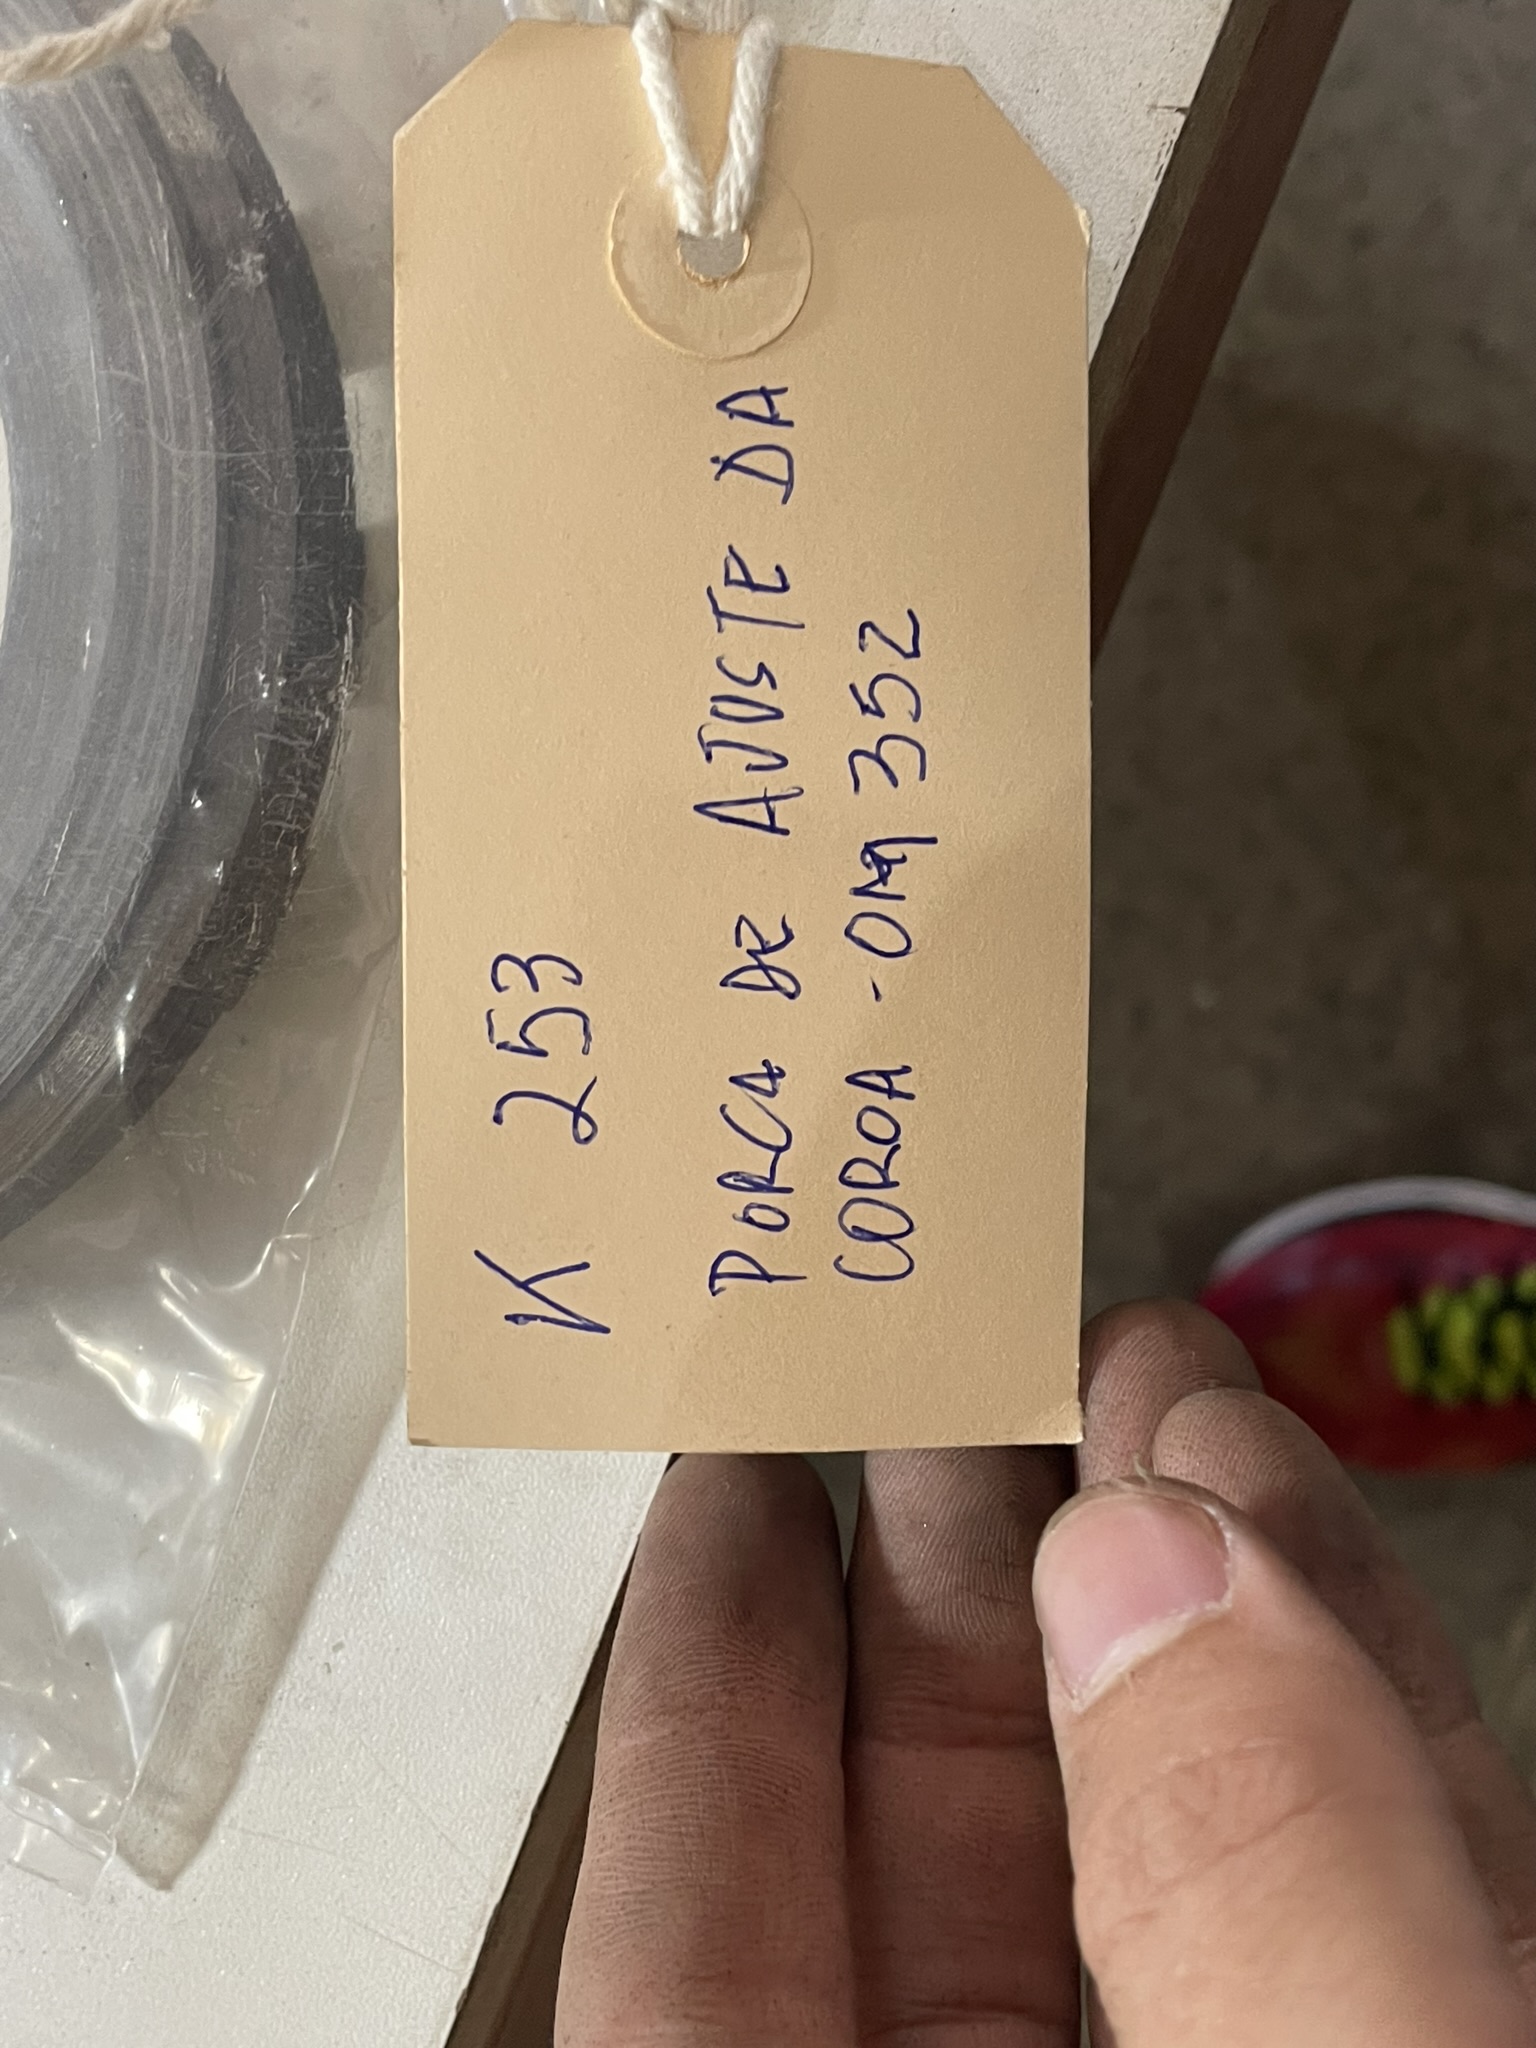 K 253
PORCA DE AJUSTE DA
COROA - OM 352